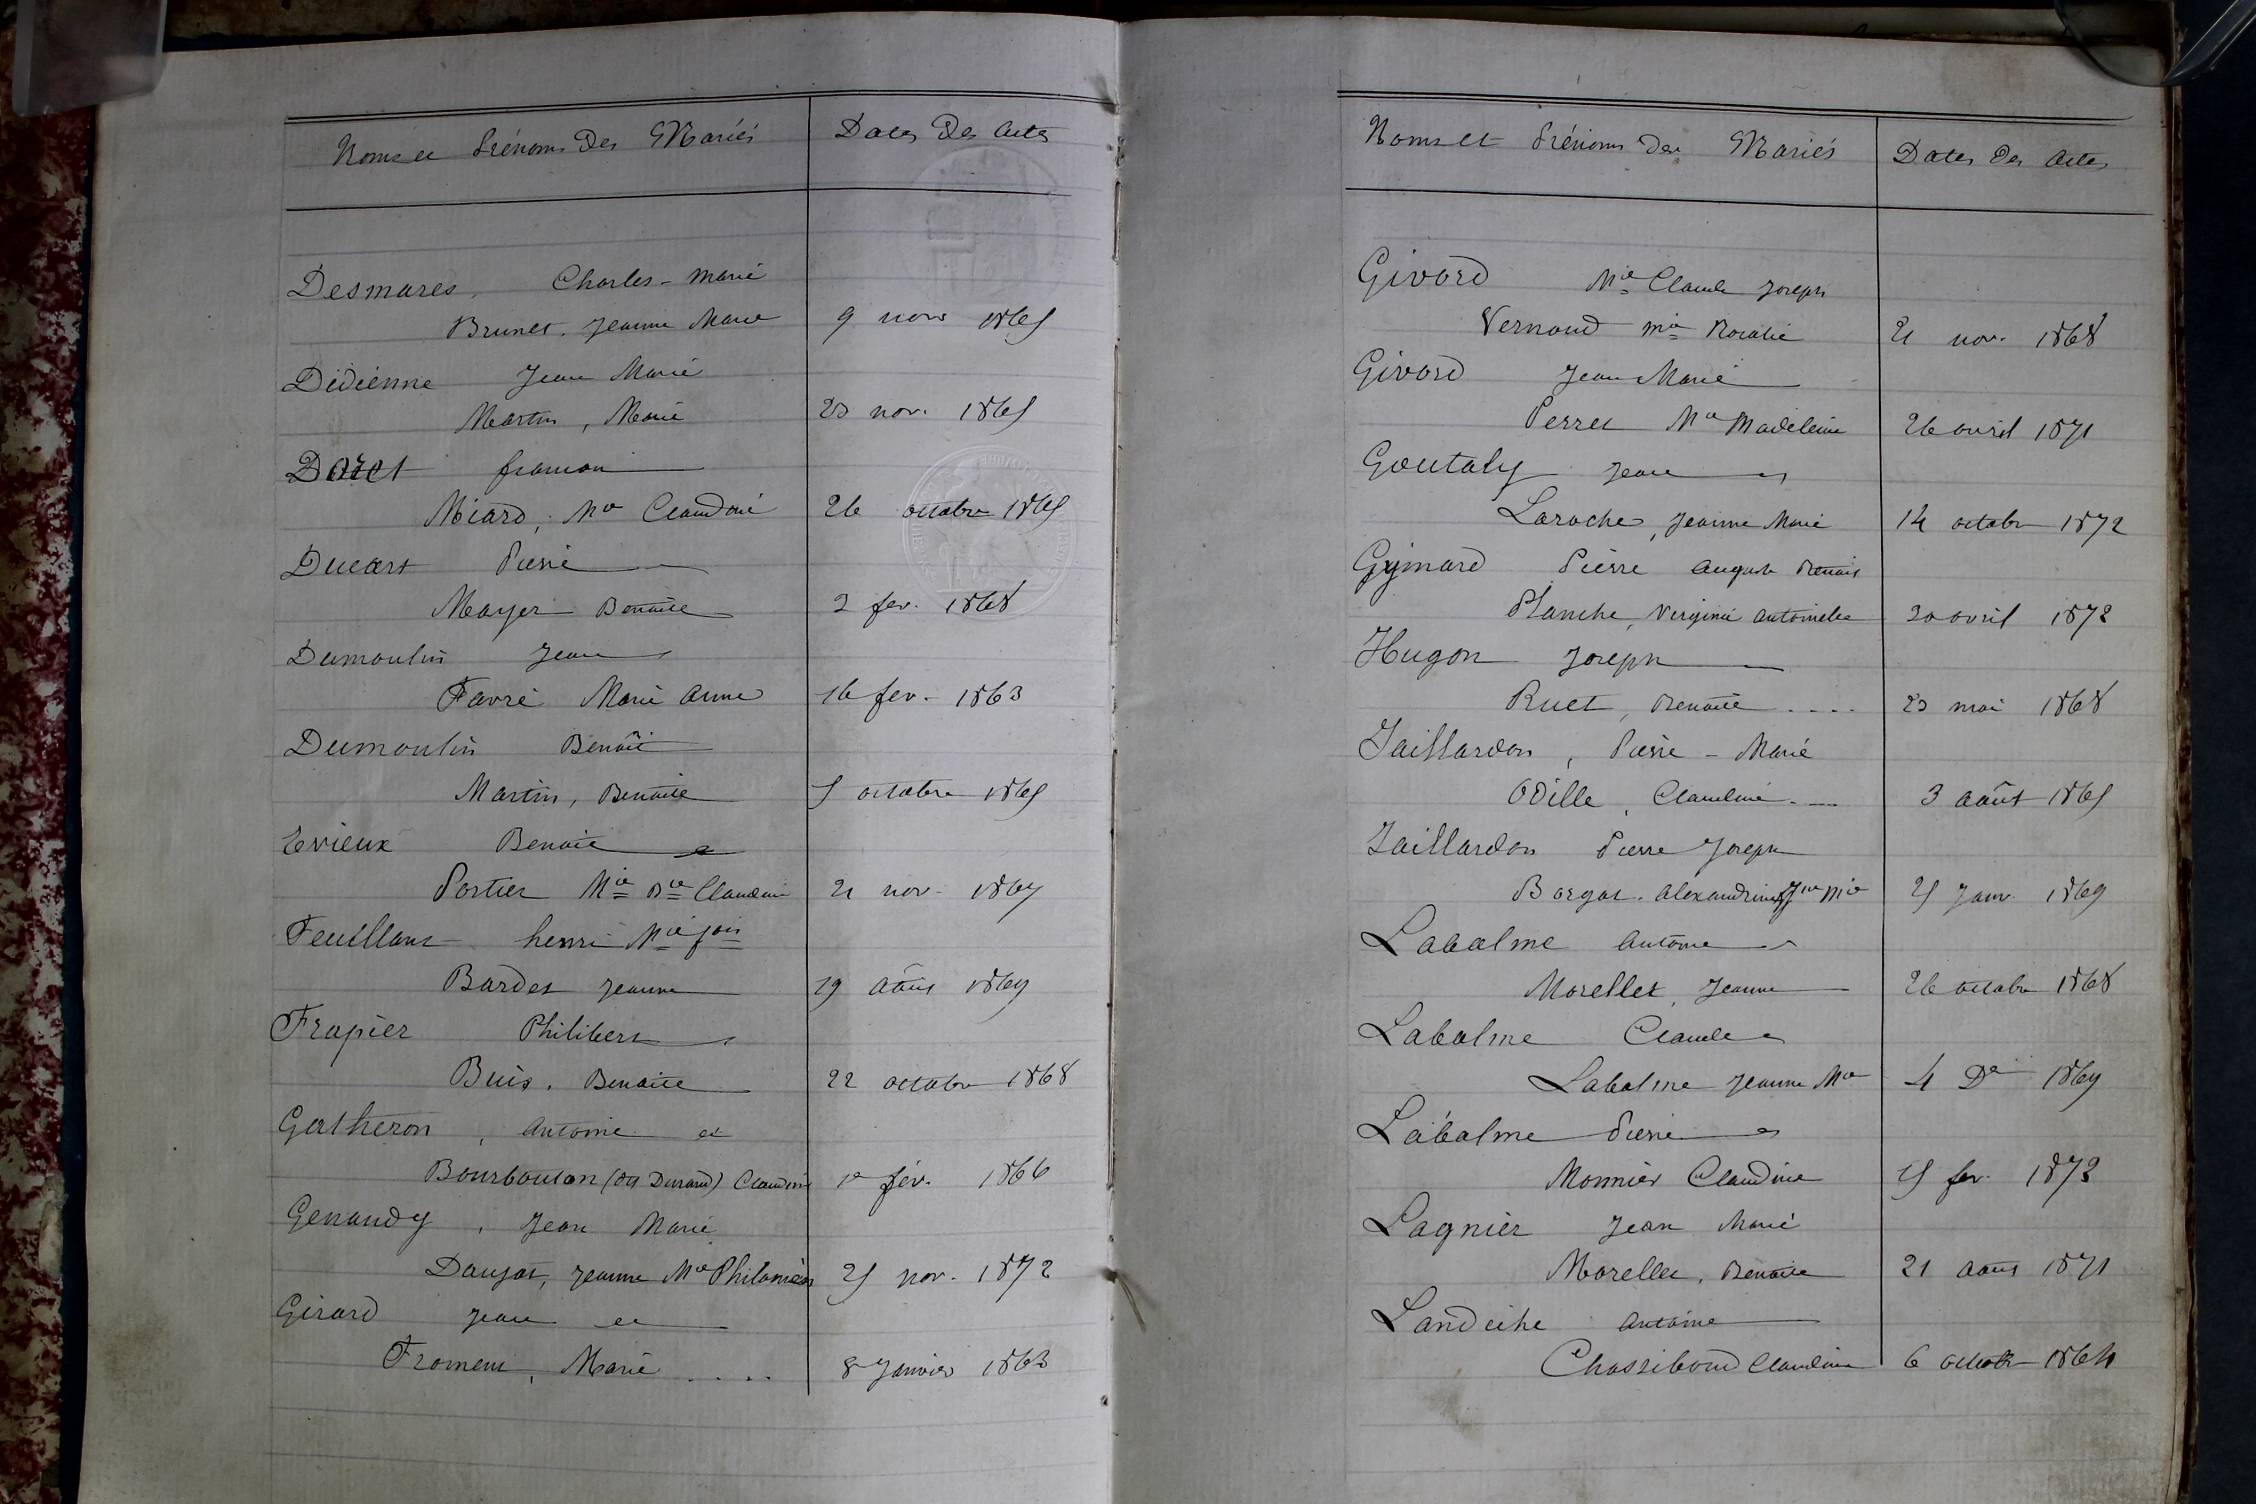 Noms et Prénoms des Mariés Dates des actes
Desmares, Charles-Marie
Brunet, Jeanne Marie 9 nov 1865
Didienne Jean Marie
Martin, Marie 23 nov. 1865
Doret
Miard, Mie Claudine 26 octobre 1865
Ducart Pierre
Mayer Benoîte 2 fev. 1868
Dumoulin Jean
Favre Marie Anne 16 fev. 1863
Dumoulin Benoît
Martin, Benoîte 5 octobre 1865
Evieux Benoît et
Portier Mie Claudine 21 nov. 1867
Feuillant henri Mie
Bardet Jeanne 19 août 1869
Frapier Philibert
Buis, Benoîte 22 octobre 1868
Gatheron, Antoine et
Bourbouton (dit Durand) Claudine 1er fév. 1866
Genaudy, Jean Marie
Daujat, Jeanne Mie Philomène 25 nov. 1872
Girard Jean et
Froment, Marie .... 8 Janvier 1863
Noms et Prénoms des Mariés Dates des Actes
Givord Mie Claude Joseph
Vernaud Mie Rosalie 21 nov. 1868
Givord Jean Marie
Perret Mie Madeleine 26 avril 1871
Goutaly Jean
Laroche, Jeanne Marie 14 octobr 1872
Gyimard Pierre Auguste
Planche, Virginie Antoinette 20 avril 1872
Hugon Joseph
Ruet, Benoîte .... 23 mai 1868
Jaillardon, Pierre-Marie
Odille, Claudine 3 août 1865
Jaillardon Pierre Joseph
Alexandrine 25 Janv. 1869
Labalme Antoine
Morellet, Jeanne 26 octobre 1868
Labalme Claude
Labalme Jeanne Mie 4 1869
Labalme Pierre
Monnier Claudine 15 fev. 1873
Lagnier Jean Marie
Morellet, Benoîte 21 août 1871
Antoine
Claudine 6 octobre 1864